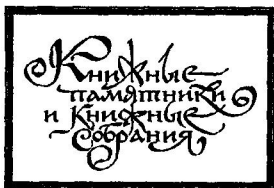 Книжные
памятники
и Книжные
Собрания